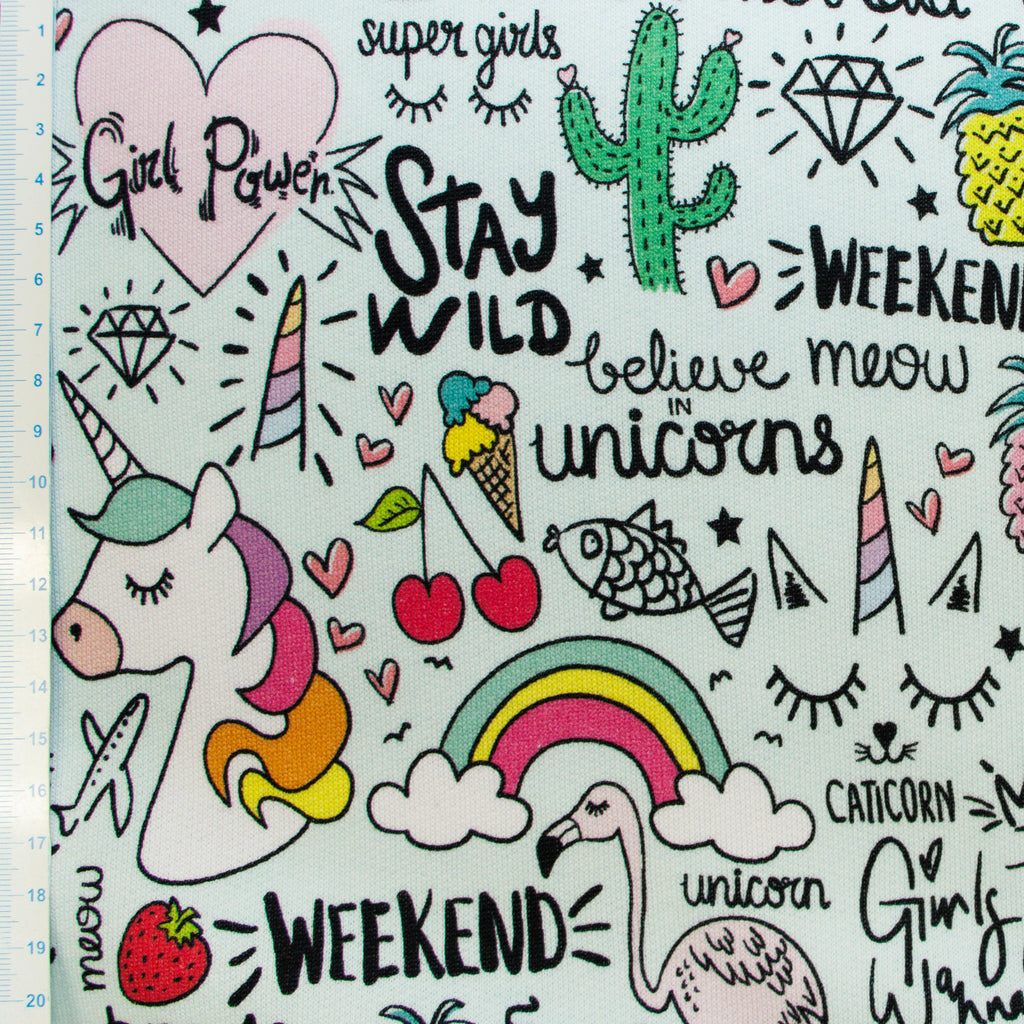 super girls
Girl Power
STAY
WILD
WEEKEN
believe
meow
IN
unicorns
CATICORN
meow
WEEKEND
unicorn
Girls
Wanna
1
2
3
4
5
6
7
8
9
10
11
12
13
14
15
16
17
18
19
20